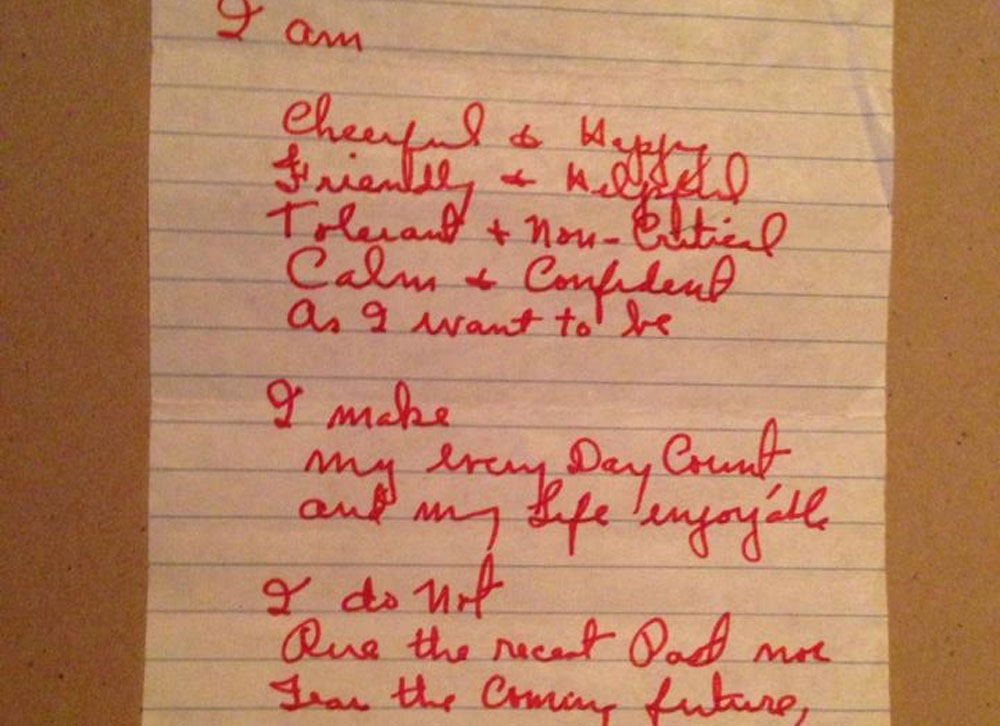 I am
Cheerful & Happy
Friendly & Helpful
Tolerant + Non-Critical
Calm & Confident
As I want to be
I make
my every Day Count
and my Life enjoyable
I do Not
the recent Past nor
Fear the Coming future,